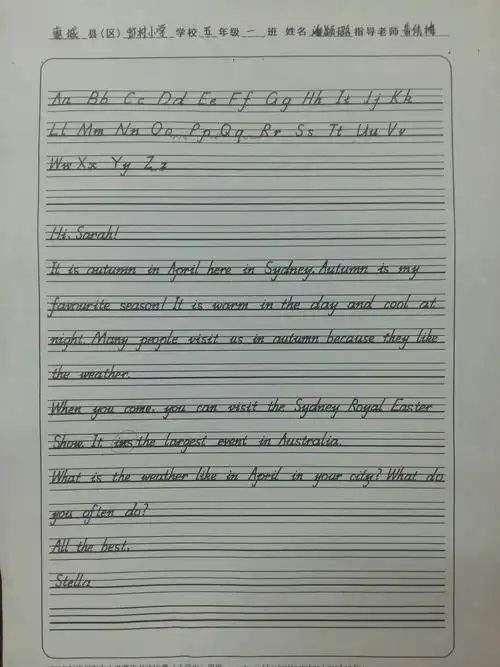 惠城 县(区) 小学 学校 五 年级 一 班 姓名 指导老师
Aa Bb Cc Dd Ee Ff Gg Hh Ii Jj Kk
Ll Mm Nn Oo Pp Qq Rr Ss Tt Uu Vv
Ww Xx Yy Zz
Hi, Sarah!
It is autumn in April here in Sydney. Autumn is my
favourite season! It is warm in the day and cool at
night. Many people visit us in autumn because they like
the weather.
When you come, you can visit the Sydney Royal Easter
Show. It ins the largest event in Australia.
What is the weather like in April in your city? What do
you often do?
All the best,
Stella